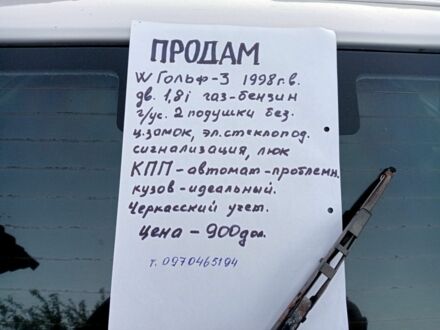 ПРОДАМ
W Гольф-3 1998г.в.
дв. 1,8i газ-бензин
г/ус. 2 подушки без.
ц.замок, эл.стеклопод.
сигнализация, люк
КПП-автомат-проблемн.
кузов-идеальный.
Черкасский учет.
цена - 900дол.
т. 0970465194